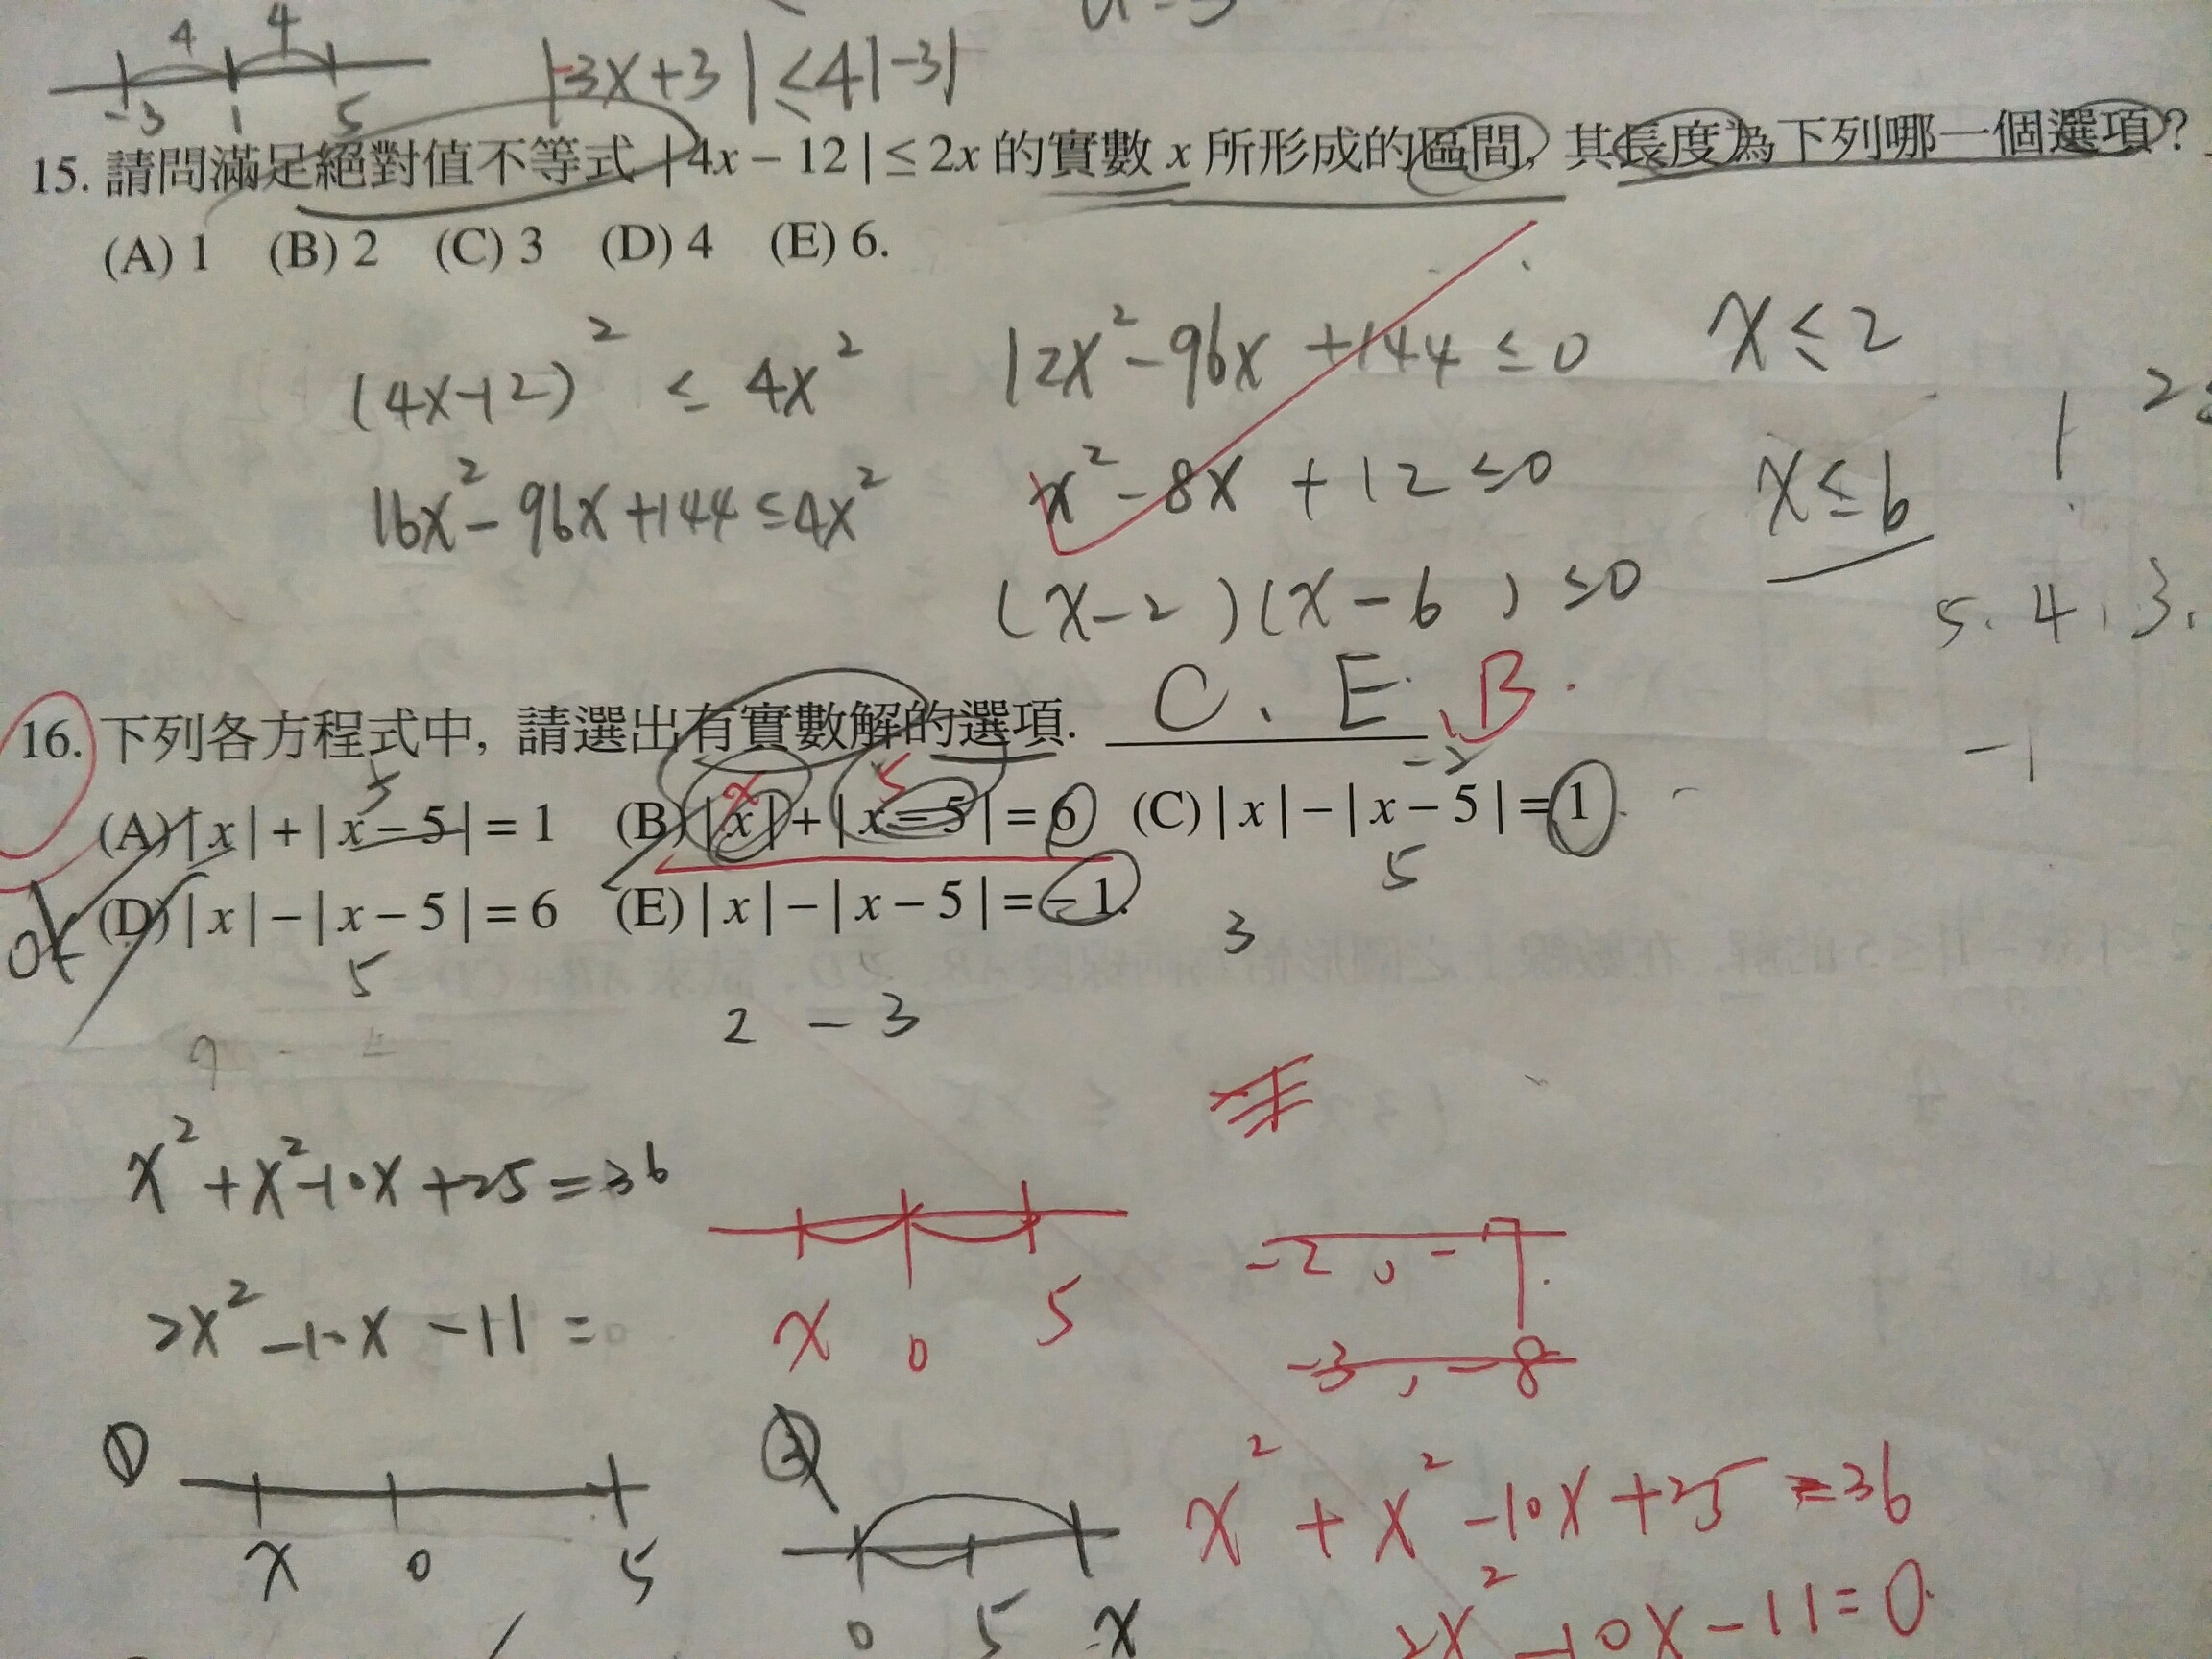 4 4
-3 1 5
|-3x+3|≤4|-3|
15. 請問滿足絕對值不等式 |4x-12|≤2x 的實數 x 所形成的區間, 其長度為下列哪一個選項?
(A) 1 (B) 2 (C) 3 (D) 4 (E) 6.
(4x-12)² ≤ 4x²
16x²-96x+144≤4x²
12x²-96x+144≤0
x²-8x+12≤0
(x-2)(x-6)≤0
x≤2
x≤6
1
5.4.3.
-1
16. 下列各方程式中, 請選出有實數解的選項. C、E、B.
(A) |x|+|x-5|=1 (B) |x|+|x-5|=6 (C) |x|-|x-5|=1.
(D) |x|-|x-5|=6 (E) |x|-|x-5|=-1.
5
5
3
2 - 3
x²+x²-10x+25=36
2x²-10x-11=0
x 0 5
-2, -7
-3, -8
① x 0 5
② 0 5 x
x²+x²-10x+25=36
2x²-10x-11=0